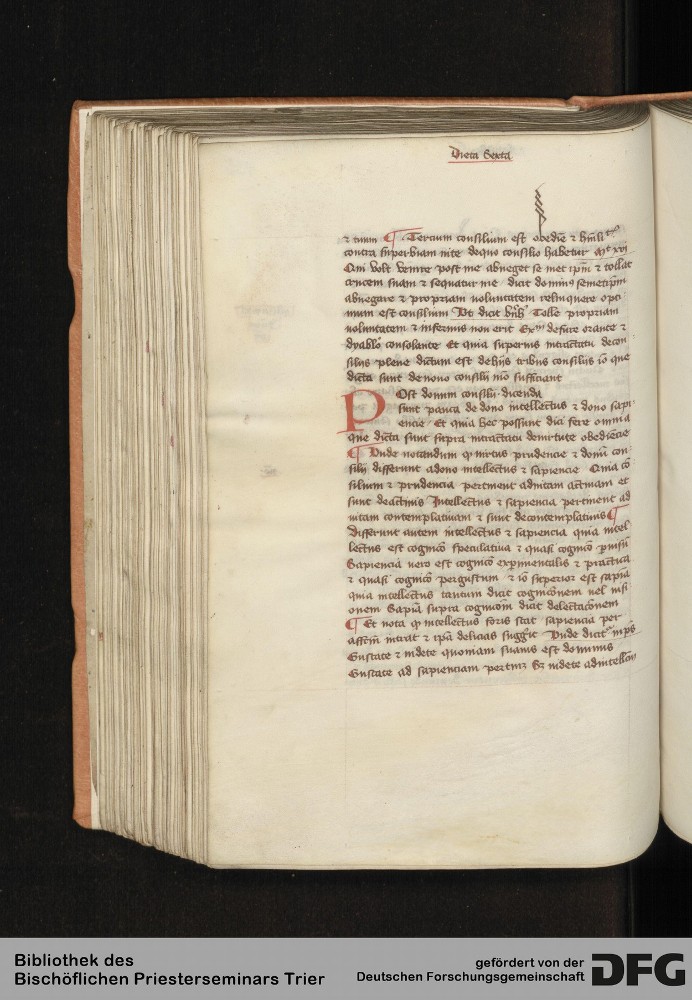 Dieta Sexta
⁊ tuum ¶ Tercium consilium est obediē ⁊ hūilitꝭ
contra superbiam vite de quo consilio habetur Mt xvi
Qui volt venire post me abneget se met ip̄m ⁊ tollat
crucem suam ⁊ sequatur me dicit dominꝰ semetip̄m
abnegare ⁊ propriam voluntatem relinquere opti
mum est consilium Vt dicit bn̄hꝰ Tolle propriam
voluntatem ⁊ infernus non erit Exm de fure orante ⁊
dyabolo consolante Et quia superius in tractatu de con
silijs plene dictum est de hijs tribus consilijs iō que
dicta sunt de nono consilij mō sufficiant
Post donum consilij dicenda
sunt pauca de dono intellectus ⁊ dono sapi
encie Et quia hec possunt dici fere omnia
que dicta sunt supra in tractatu de virtute obediēcie
¶ Vnde notandum ꝙ virtus prudencie ⁊ donū con
silij differunt a dono intellectus ⁊ sapiencie Quia cō
silium ⁊ prudencia pertinent ad vitam actiuam et
sunt de actiuis Intellectus ⁊ sapiencia pertinent ad
vitam contemplatiuam ⁊ sunt de contemplatiuis ¶
differunt autem intellectus ⁊ sapiencia quia intel
lectus est cognicō speculatiua ⁊ quasi cognicō ꝑ visū
Sapiencia vero est cognicō experimentalis ⁊ practica
⁊ quasi cognicō per gustum ⁊ iō superior est sapīa
quia intellectus tantum dicit cognicōnem vel visi
onem Sapīa supra cognicōm dicit delectacōnem
¶ Et nota ꝙ intellectus foris stat sapiencia per
affectū intrat ⁊ ip̄a delicias suggit Vnde dicitr in p̄s
Gustate ⁊ videte quoniam suauis est dominus
Gustate ad sapienciam pertinꝫ Sꝫ videte ad intellcm
Bibliothek des
Bischöflichen Priesterseminars Trier
gefördert von der
Deutschen Forschungsgemeinschaft
DFG